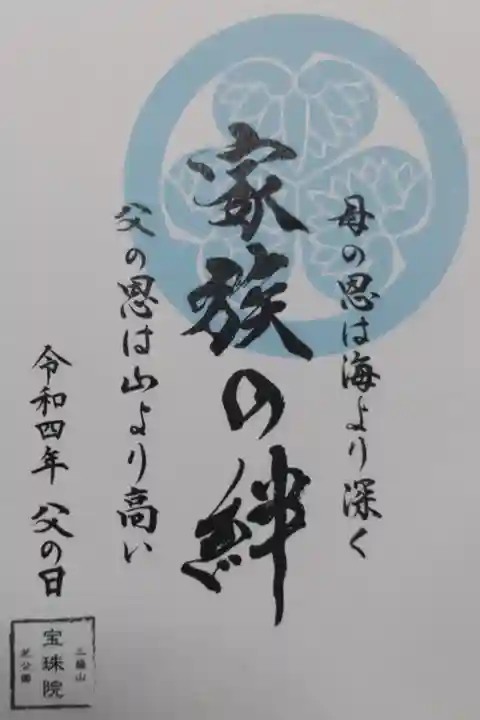 母の恩は海より深く
家族の絆
父の恩は山より高い
令和四年 父の日
三縁山
宝珠院
芝公園